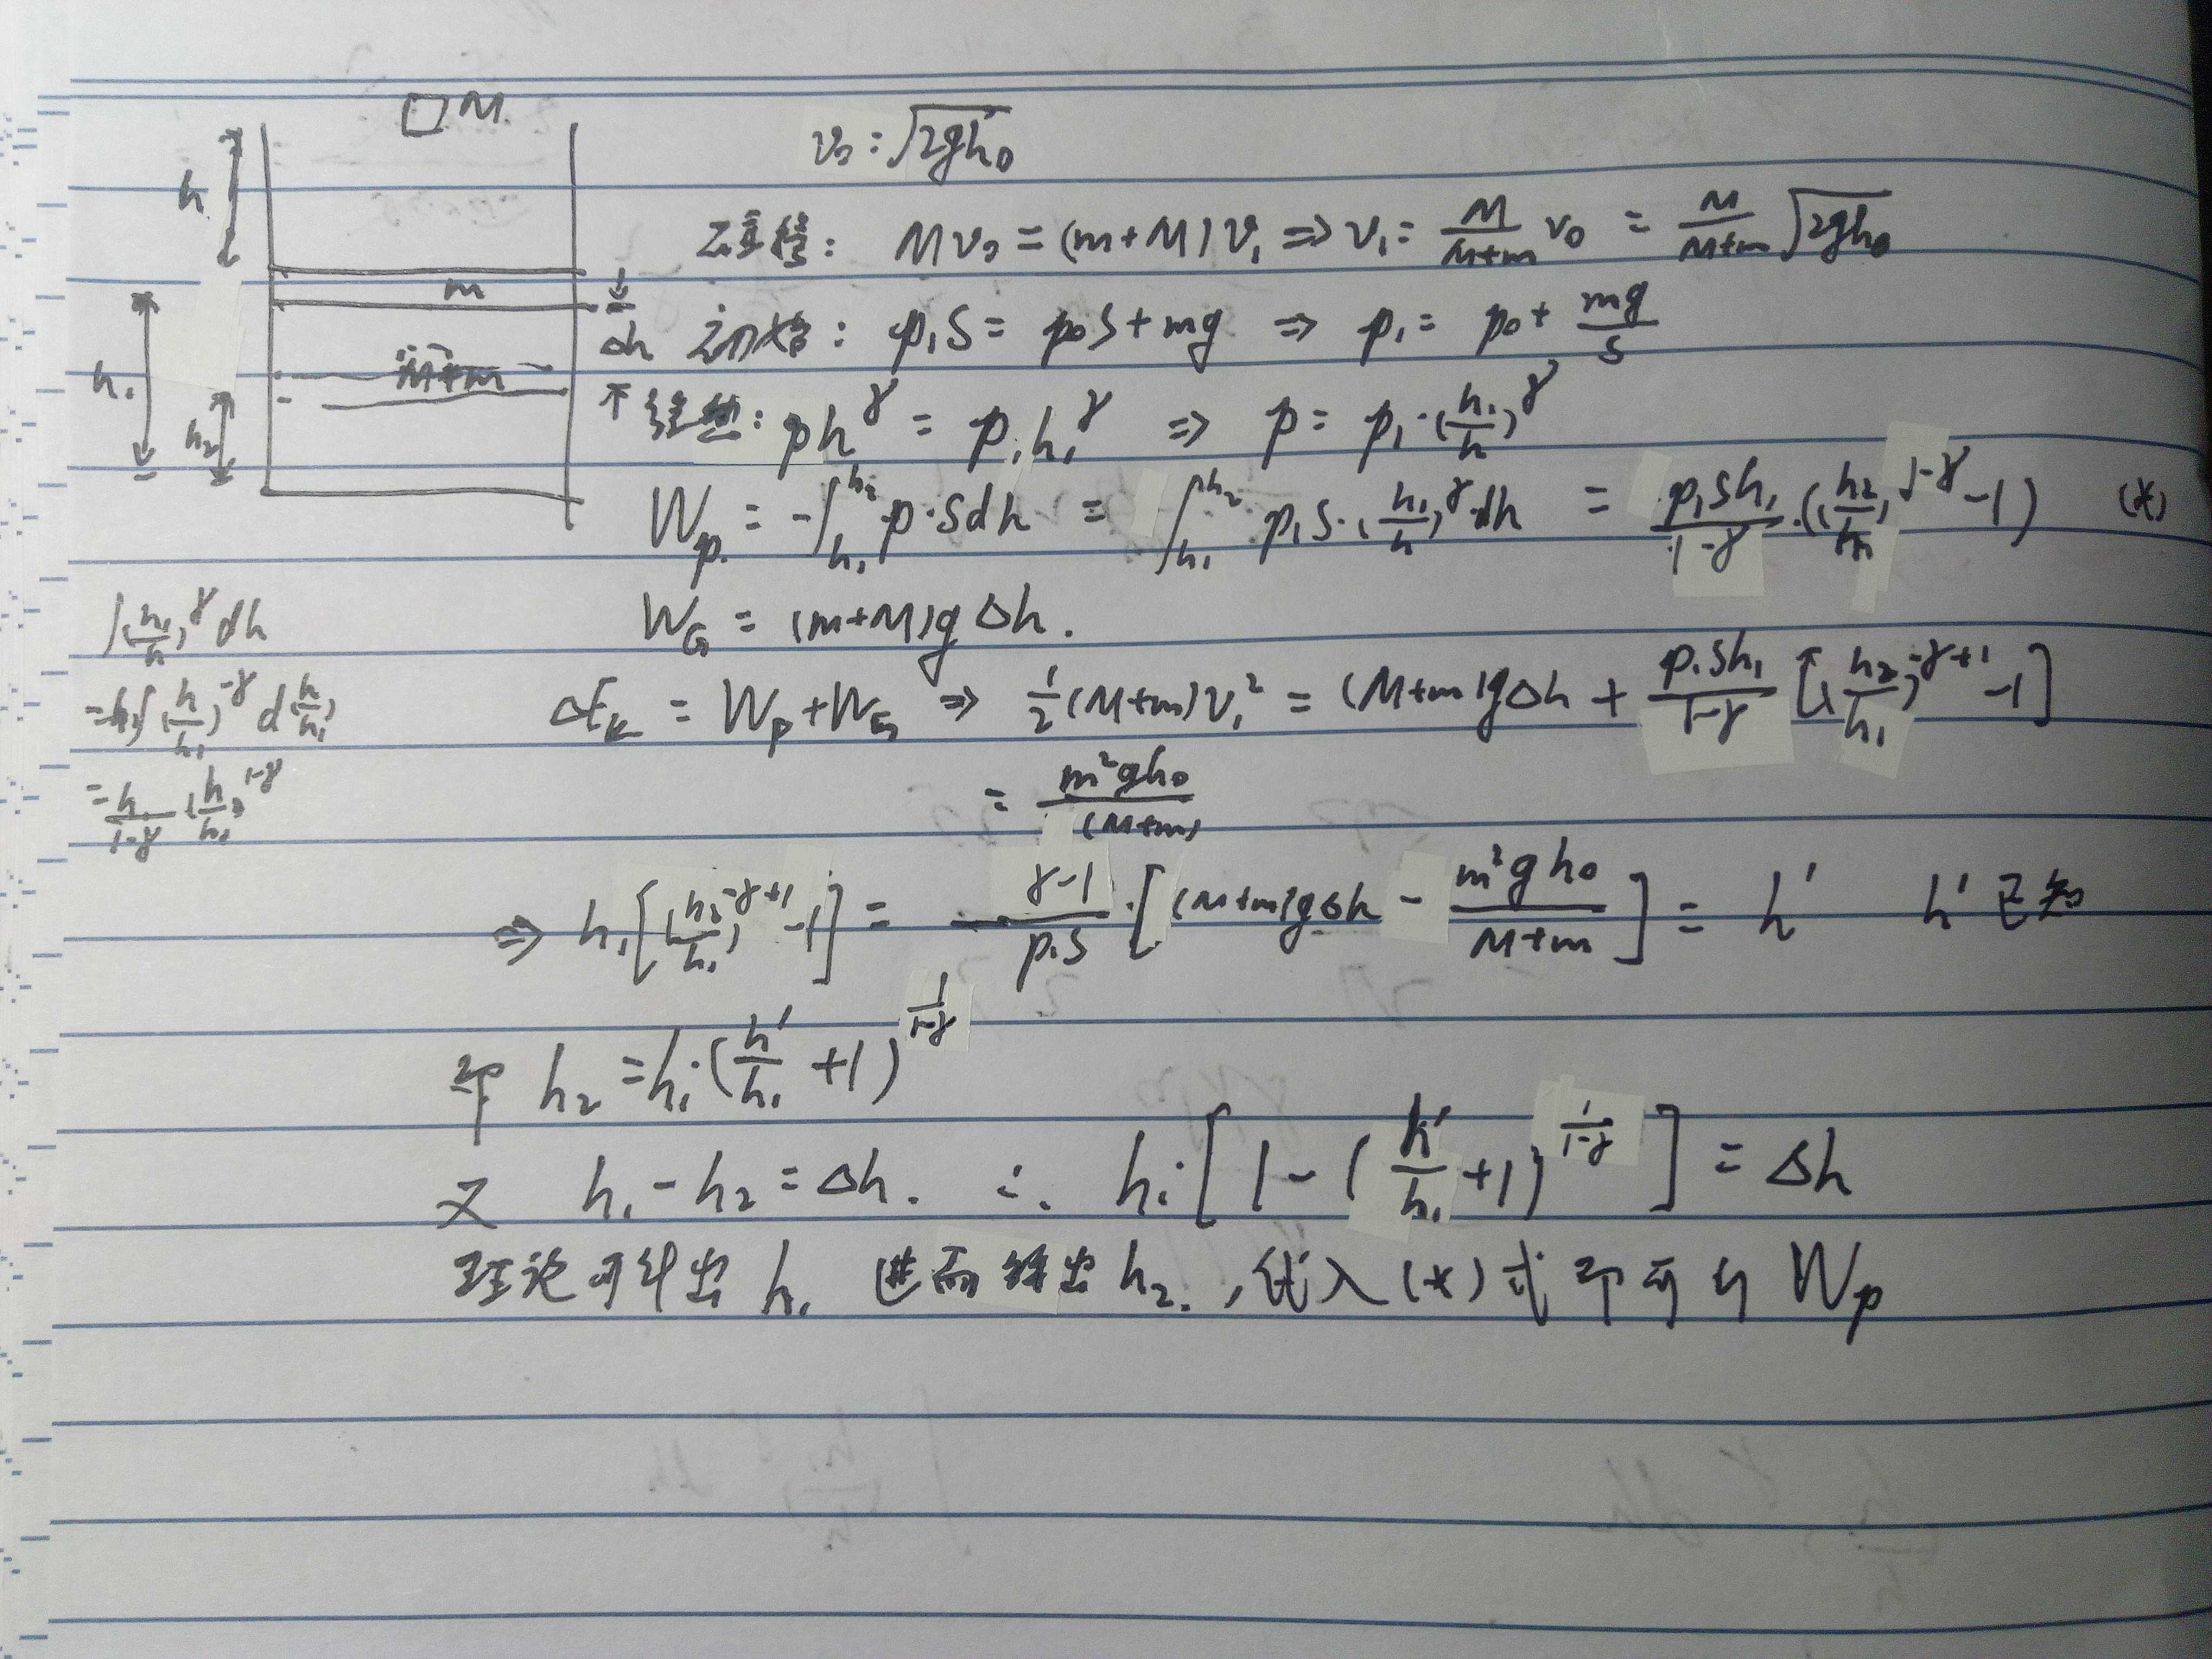 □M.
h
m
h₁
M+m
h₂
Δh
v₀ = √2gh₀
碰撞: Mv₀ = (m+M)v₁ ⇒ v₁ = M/(M+m) v₀ = M/(M+m) √2gh₀
初始: p₁S = p₀S + mg ⇒ p₁ = p₀ + mg/S
绝热: ph^γ = p₁h₁^γ ⇒ p = p₁·(h₁/h)^γ
W_p = -∫_{h₁}^{h₂} p·Sdh = ∫_{h₁}^{h₂} p₁S·(h₁/h)^γ·dh = p₁Sh₁/(1-γ)·((h₂/h₁)^{1-γ} - 1) (*)
W_G = (m+M)gΔh.
∫(h₁/h)^γ dh
= h₁∫(h/h₁)^{-γ} d(h/h₁)
= h₁/(1-γ) (h/h₁)^{1-γ}
ΔE_k = W_p + W_G ⇒ ½(M+m)v₁² = (M+m)gΔh + p₁Sh₁/(1-γ) [(h₂/h₁)^{-γ+1} - 1]
= m²gh₀/(M+m)
⇒ h₁[(h₂/h₁)^{-γ+1} - 1] = (γ-1)/(p₁S)·[(M+m)gΔh - m²gh₀/(M+m)] = h′ h′已知
即 h₂ = h₁·(h′/h₁ + 1)^{1/(1-γ)}
又 h₁ - h₂ = Δh. ∴ h₁·[1 - (h′/h₁ + 1)^{1/(1-γ)}] = Δh
理论可算出 h₁ 进而算出 h₂. , 代入(*)式即可得 W_p